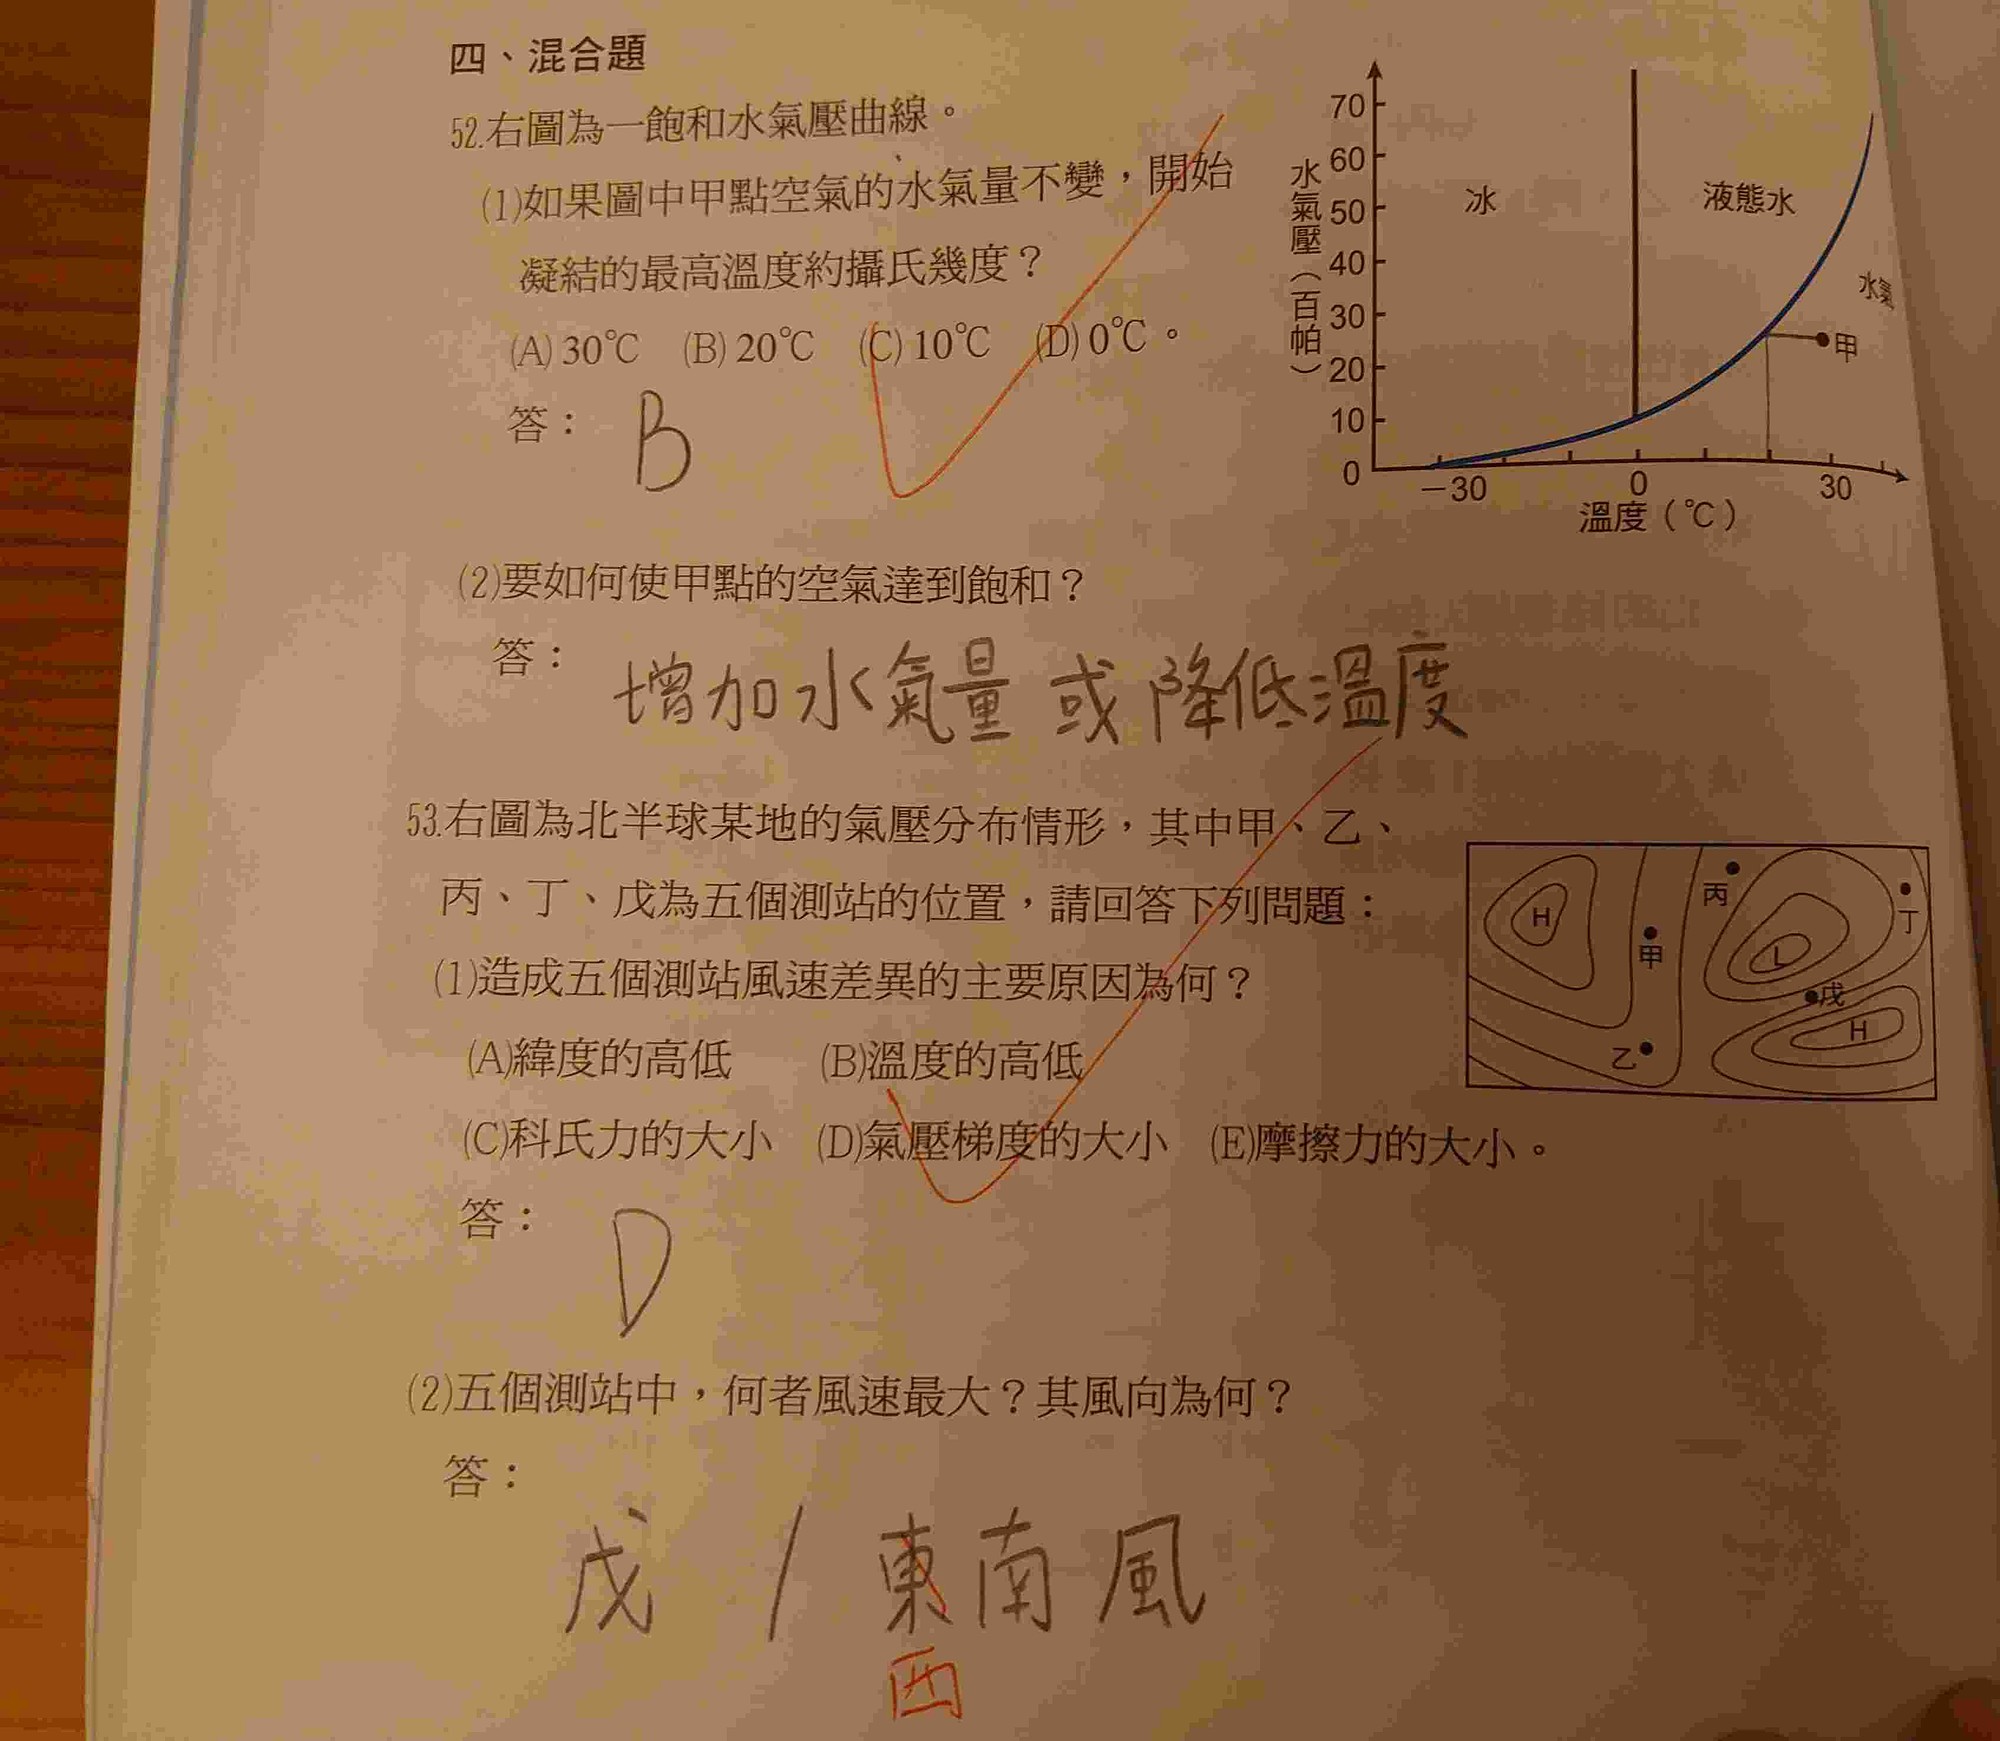 四、混合題
52.右圖為一飽和水氣壓曲線。
(1)如果圖中甲點空氣的水氣量不變,開始
凝結的最高溫度約攝氏幾度?
(A) 30℃ (B) 20℃ (C) 10℃ (D) 0℃。
答: B
水氣壓(百帕)
70
60
50
40
30
20
10
0
冰
液態水
水氣
甲
-30
0
30
溫度(℃)
(2)要如何使甲點的空氣達到飽和?
答: 增加水氣量 或 降低溫度
53.右圖為北半球某地的氣壓分布情形,其中甲、乙、
丙、丁、戊為五個測站的位置,請回答下列問題:
(1)造成五個測站風速差異的主要原因為何?
(A)緯度的高低 (B)溫度的高低
(C)科氏力的大小 (D)氣壓梯度的大小 (E)摩擦力的大小。
答: D
H
甲
乙
丙
L
丁
戊
H
(2)五個測站中,何者風速最大?其風向為何?
答:
戊 / 東南風
西